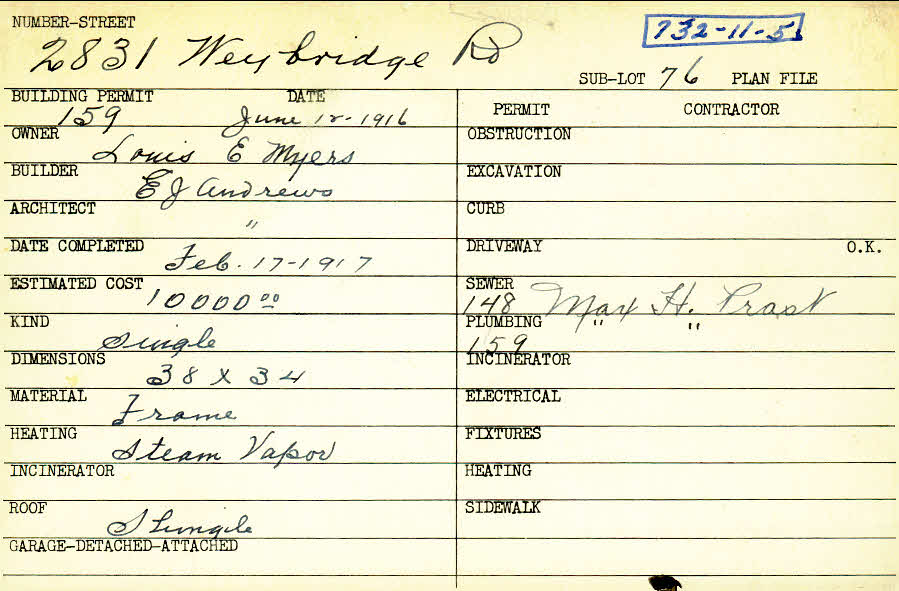 NUMBER-STREET
2831 Weybridge Rd
732-11-5
SUB-LOT 76 PLAN FILE
BUILDING PERMIT DATE
159 June 12-1916
OWNER
Louis E Myers
BUILDER
E J Andrews
ARCHITECT
"
DATE COMPLETED
Feb. 17-1917
ESTIMATED COST
10000 00
KIND
Single
DIMENSIONS
38 X 34
MATERIAL
Frame
HEATING
Steam Vapor
INCINERATOR
ROOF
Shingle
GARAGE-DETACHED-ATTACHED
PERMIT CONTRACTOR
OBSTRUCTION
EXCAVATION
CURB
DRIVEWAY O.K.
SEWER
148 Max H.
PLUMBING " "
159
INCINERATOR
ELECTRICAL
FIXTURES
HEATING
SIDEWALK